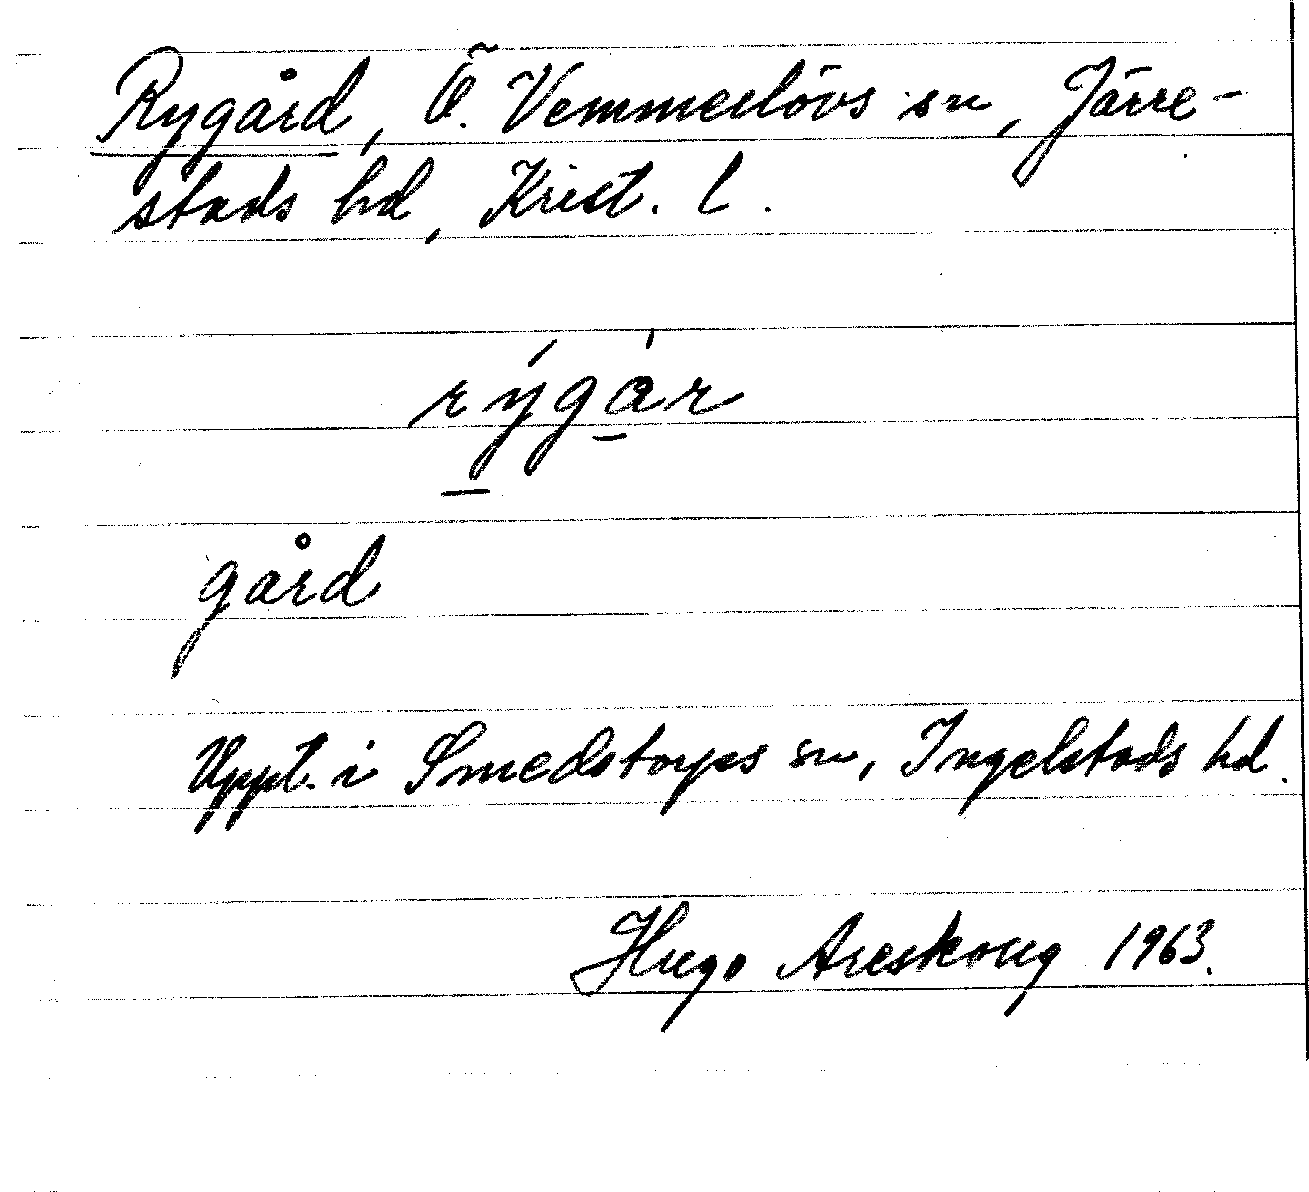 Rygård, Ö. Vemmerlövs sn, Järre-
stads hd, Krist. l.
rý̲gà̲r
gård
Uppt. i Smedstorps sn, Ingelstads hd.
Hugo Areskoug 1963.